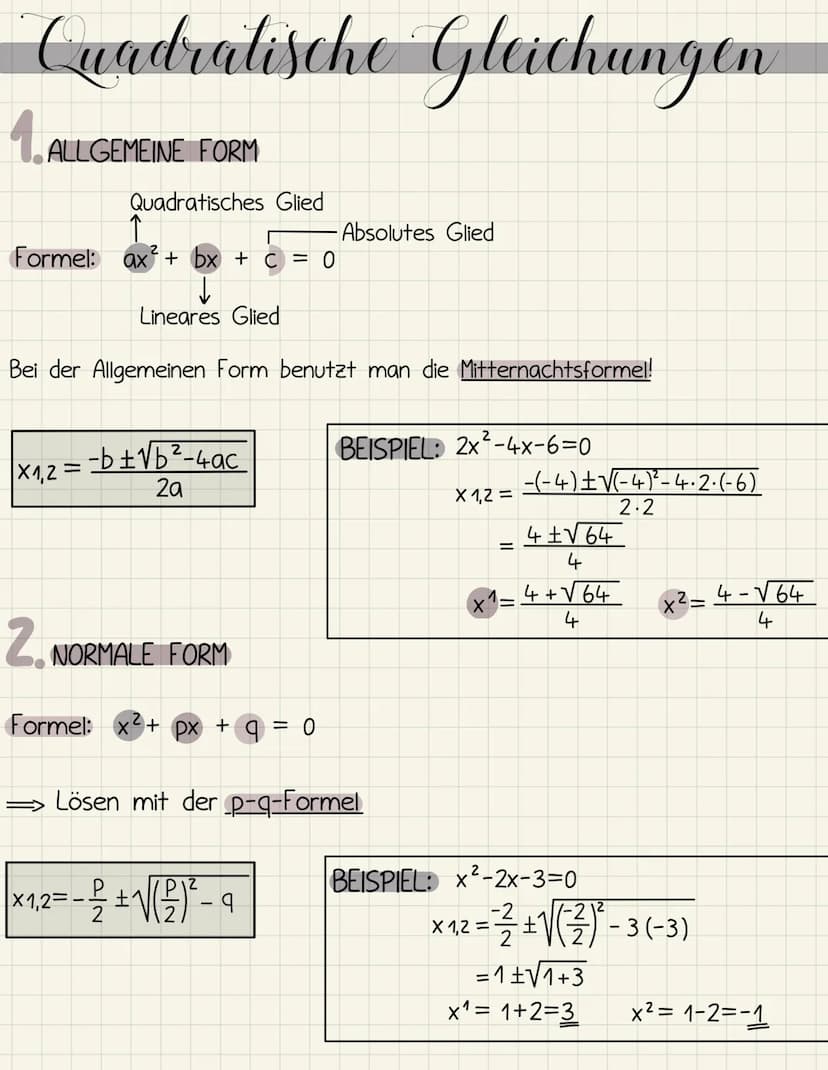 Quadratische Gleichungen
1. ALLGEMEINE FORM
Quadratisches Glied
Absolutes Glied
Formel: ax² + bx + c = 0
Lineares Glied
Bei der Allgemeinen Form benutzt man die Mitternachtsformel!
x1,2 = -b±√b²-4ac / 2a
BEISPIEL: 2x²-4x-6=0
x1,2 = -(-4)±√(-4)²-4·2·(-6) / 2·2
= 4±√64 / 4
x¹= 4+√64 / 4 x²= 4-√64 / 4
2. NORMALE FORM
Formel: x²+ px + q = 0
⟹ Lösen mit der p-q-Formel
x1,2= -p/2 ±√(p/2)²-q
BEISPIEL: x²-2x-3=0
x1,2 = -2/2 ±√(-2/2)²-3(-3)
=1±√1+3
x¹= 1+2=3 x²= 1-2=-1